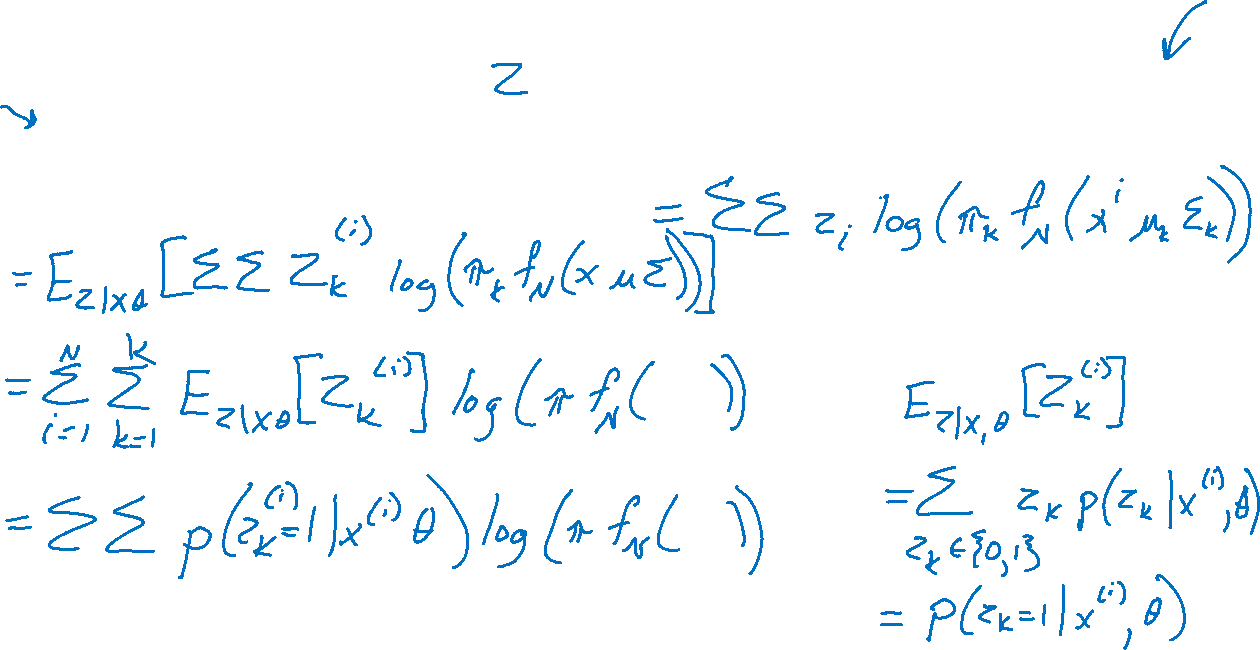 z
= ΣΣ z_i log(π_k f_N(x^i μ_k Σ_k))
= E_{z|xθ}[ΣΣ z_k^{(i)} log(π_k f_N(x μ Σ))]
= Σ_{i=1}^{N} Σ_{k=1}^{K} E_{z|xθ}[z_k^{(i)}] log(π f_N( ))
E_{z|x,θ}[z_k^{(i)}]
= ΣΣ p(z_k^{(i)}=1|x^{(i)} θ) log(π f_N( ))
= Σ_{z_k∈{0,1}} z_k p(z_k|x^{(i)},θ)
= p(z_k=1|x^{(i)},θ)